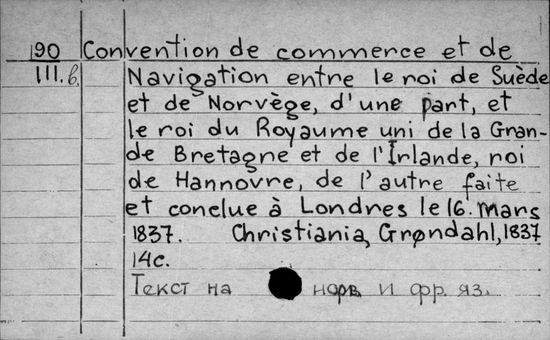 190 Convention de commerce et de
III.б. Navigation entre le roi de Suède
et de Norvège, d'une part, et
le roi du Royaume uni de la Gran-
de Bretagne et de l'Irlande, roi
de Hannovre, de l'autre faite
et conclue à Londres le 16. mars
1837. Christiania, Grøndahl, 1837
14c.
Текст на норв. и фр. яз.